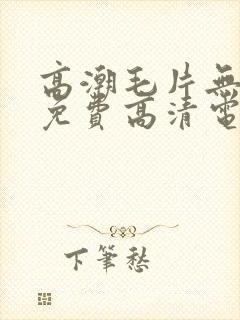 高潮毛片無
免費高清電
下筆愁